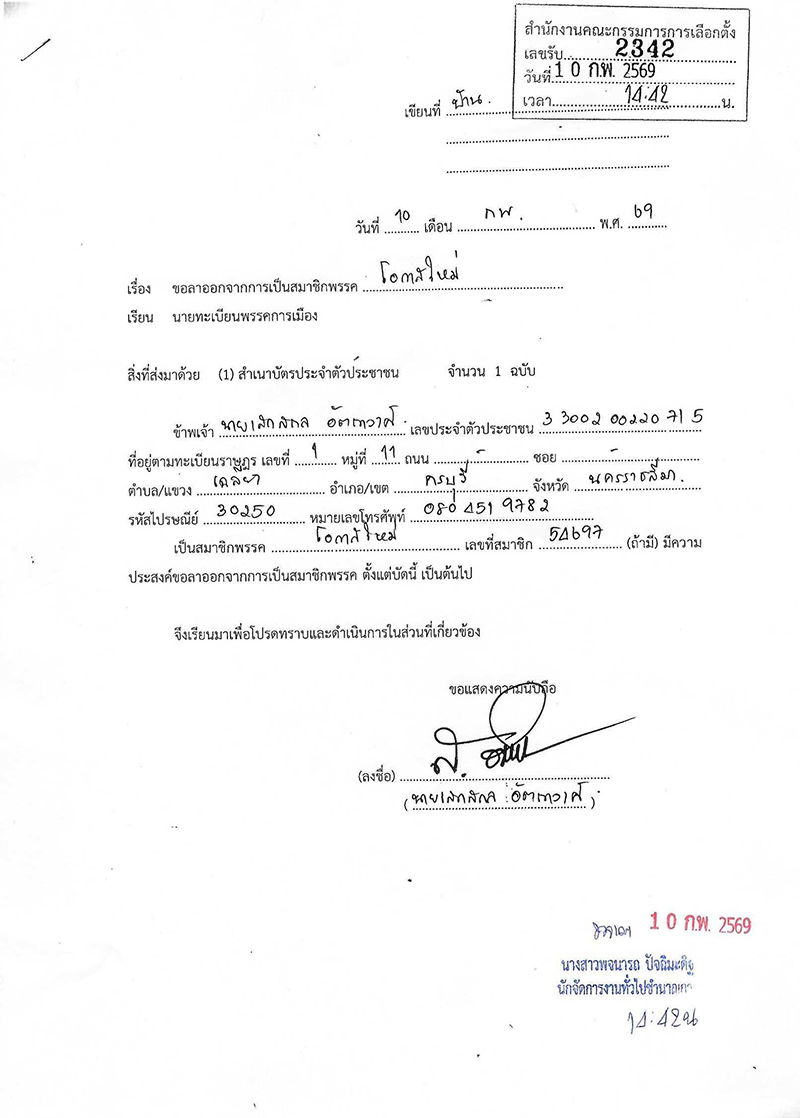 สำนักงานคณะกรรมการการเลือกตั้ง
เลขรับ 2342
วันที่ 10 ก.พ. 2569
เวลา 14:42 น.
เขียนที่
วันที่ 10 เดือน กพ. พ.ศ. 69
เรื่อง ขอลาออกจากการเป็นสมาชิกพรรค โอกาสใหม่
เรียน นายทะเบียนพรรคการเมือง
สิ่งที่ส่งมาด้วย (1) สำเนาบัตรประจำตัวประชาชน จำนวน 1 ฉบับ
ข้าพเจ้า นายเสกสกล อัตถาวงศ์ เลขประจำตัวประชาชน 3 3002 00220 71 5
ที่อยู่ตามทะเบียนราษฎร เลขที่ 1 หมู่ที่ 11 ถนน - ซอย -
ตำบล/แขวง เฉลียง อำเภอ/เขต ครบุรี จังหวัด นครราชสีมา
รหัสไปรษณีย์ 30250 หมายเลขโทรศัพท์ 080 451 9782
เป็นสมาชิกพรรค โอกาสใหม่ เลขที่สมาชิก 54697 (ถ้ามี) มีความ
ประสงค์ขอลาออกจากการเป็นสมาชิกพรรค ตั้งแต่บัดนี้ เป็นต้นไป
จึงเรียนมาเพื่อโปรดทราบและดำเนินการในส่วนที่เกี่ยวข้อง
ขอแสดงความนับถือ
(ลงชื่อ)
(นายเสกสกล อัตถาวงศ์)
10 ก.พ. 2569
นางสาวพจนารถ ปัจฉิมะดิฐ
นักจัดการงานทั่วไปชำนาญการ
14:42 น